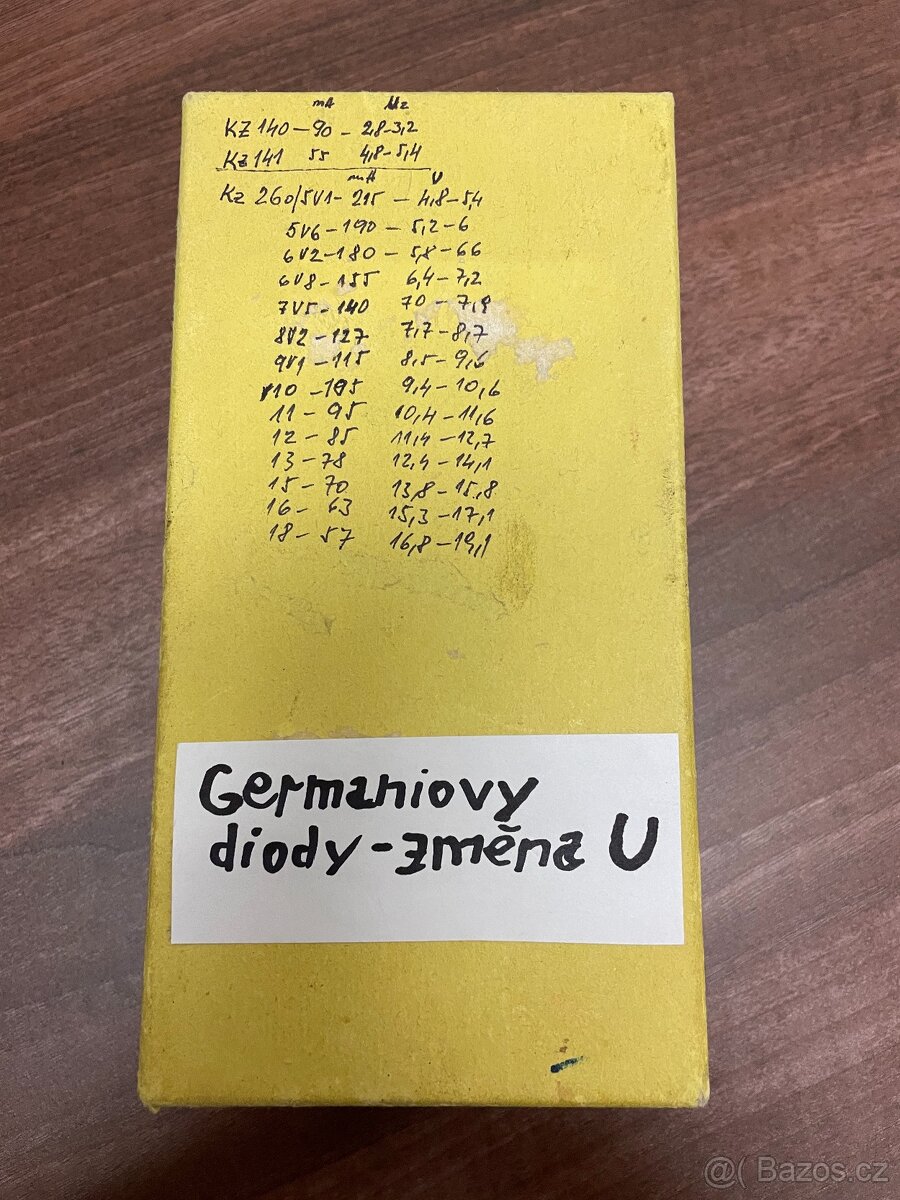 mA Uz
KZ 140 - 90 - 2,8-3,2
KZ 141 55 4,8-5,4
mA U
KZ 260/5V1 - 215 - 4,8-5,4
5V6 - 190 - 5,2-6
6V2 - 180 - 5,8-66
6V8 - 155 6,4-7,2
7V5 - 140 70-7,9
8V2 - 127 7,7-8,7
9V1 - 115 8,5-9,6
V10 - 105 9,4-10,6
11 - 95 10,4-11,6
12 - 85 11,4-12,7
13 - 78 12,4-14,1
15 - 70 13,8-15,8
16 - 63 15,3-17,1
18 - 57 16,8-19,1
Germaniovy
diody - změna U
@( Bazos.cz